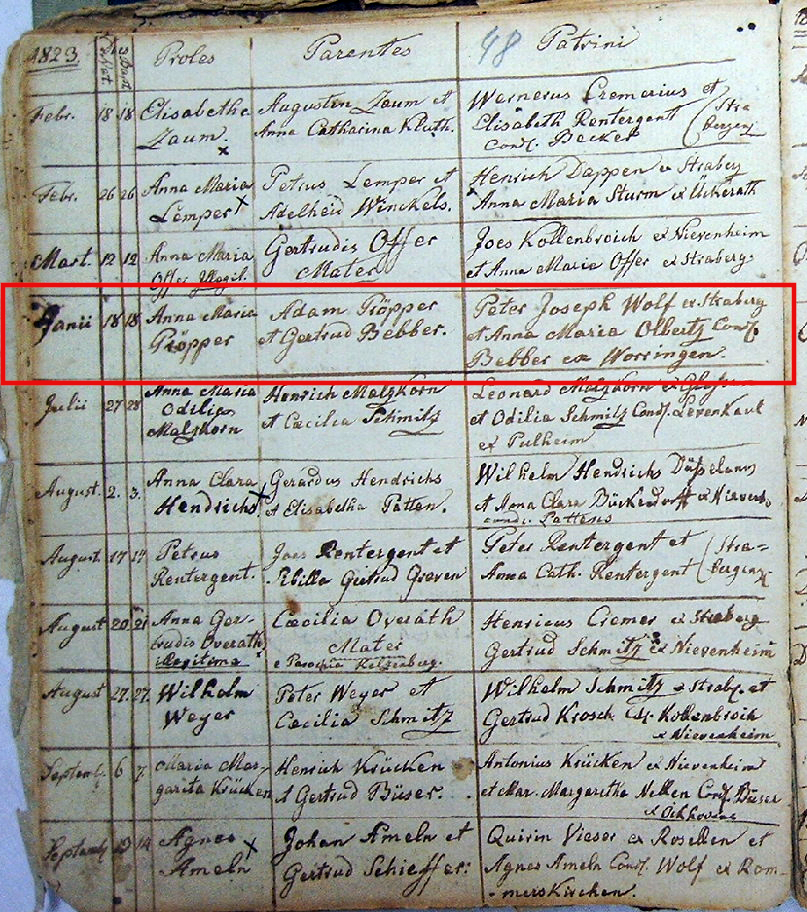 1823. Nat. Bapt. Proles Parentes 48 Patrini
Febr. 18 18 Elisabetha Augustin Zaum et Wernerus Cremerius et
Zaum x Anna Catharina Kluth. Elisabeth Rentergent (Stra
conj. Becker bergenses
Febr. 26 26 Anna Maria Petrus Lemper et Henrich Dappen ex Straberg
Lemper x Adelheid Winckels. Anna Maria Sturm ex Ückerath
Mart. 12 12 Anna Maria Gertrudis Offer Joes Kollenbroich ex Nievenheim
Offer illegit. Mater et Anna Maria Offer ex Straberg.
Junii 18 18 Anna Maria Adam Pröpper Peter Joseph Wolf ex Straberg
Pröpper et Gertrud Bebber. et Anna Maria Olbertz Conj.
Bebber ex Worringen.
Julii 27 28 Anna Maria Henrich Malzkorn Leonard Malzkorn ex
Odilia et Cæcilia Schmitz et Odilia Schmitz Conj. Levenkaul
Malzkorn ex Pulheim
August. 2. 3. Anna Clara Gerardus Hendrichs Wilhelm Hendrichs
Hendrichs x et Elisabetha Patten. et Anna Clara Bückendorff ex Nievenh.
conj. Pattens
August. 17 17 Petrus Joes Rentergent et Peter Rentergent et (Stra-
Rentergent. Sibilla Giertrud Greven Anna Cath. Rentergent
August 20 21 Anna Ger- Cæcilia Overath Henricus Cremer ex Straberg
trudis Overath Mater Gertrud Schmitz ex Nievenheim
illegitima e Parochia
August 27. 27. Wilhelm Peter Weyer et Wilhelm Schmitz ex Strab. et
Weyer Cæcilia Schmitz Gertrud Krosch Conj. Kollenbroich
ex Nievenheim
Septemb. 6 7 Maria Mar- Henrich Krücken Antonius Krücken ex Nievenheim
garita Krücken et Gertrud Büser. et Mar. Margaretha Nellen Conj. Büser
ex Öckhoven
Septemb. 13 14 Agnes x Johan Ameln et Quirin Vieser ex Rosellen et
Ameln Gertrud Schieffer. Agnes Ameln Conj. Wolf ex Rom-
merskirchen.